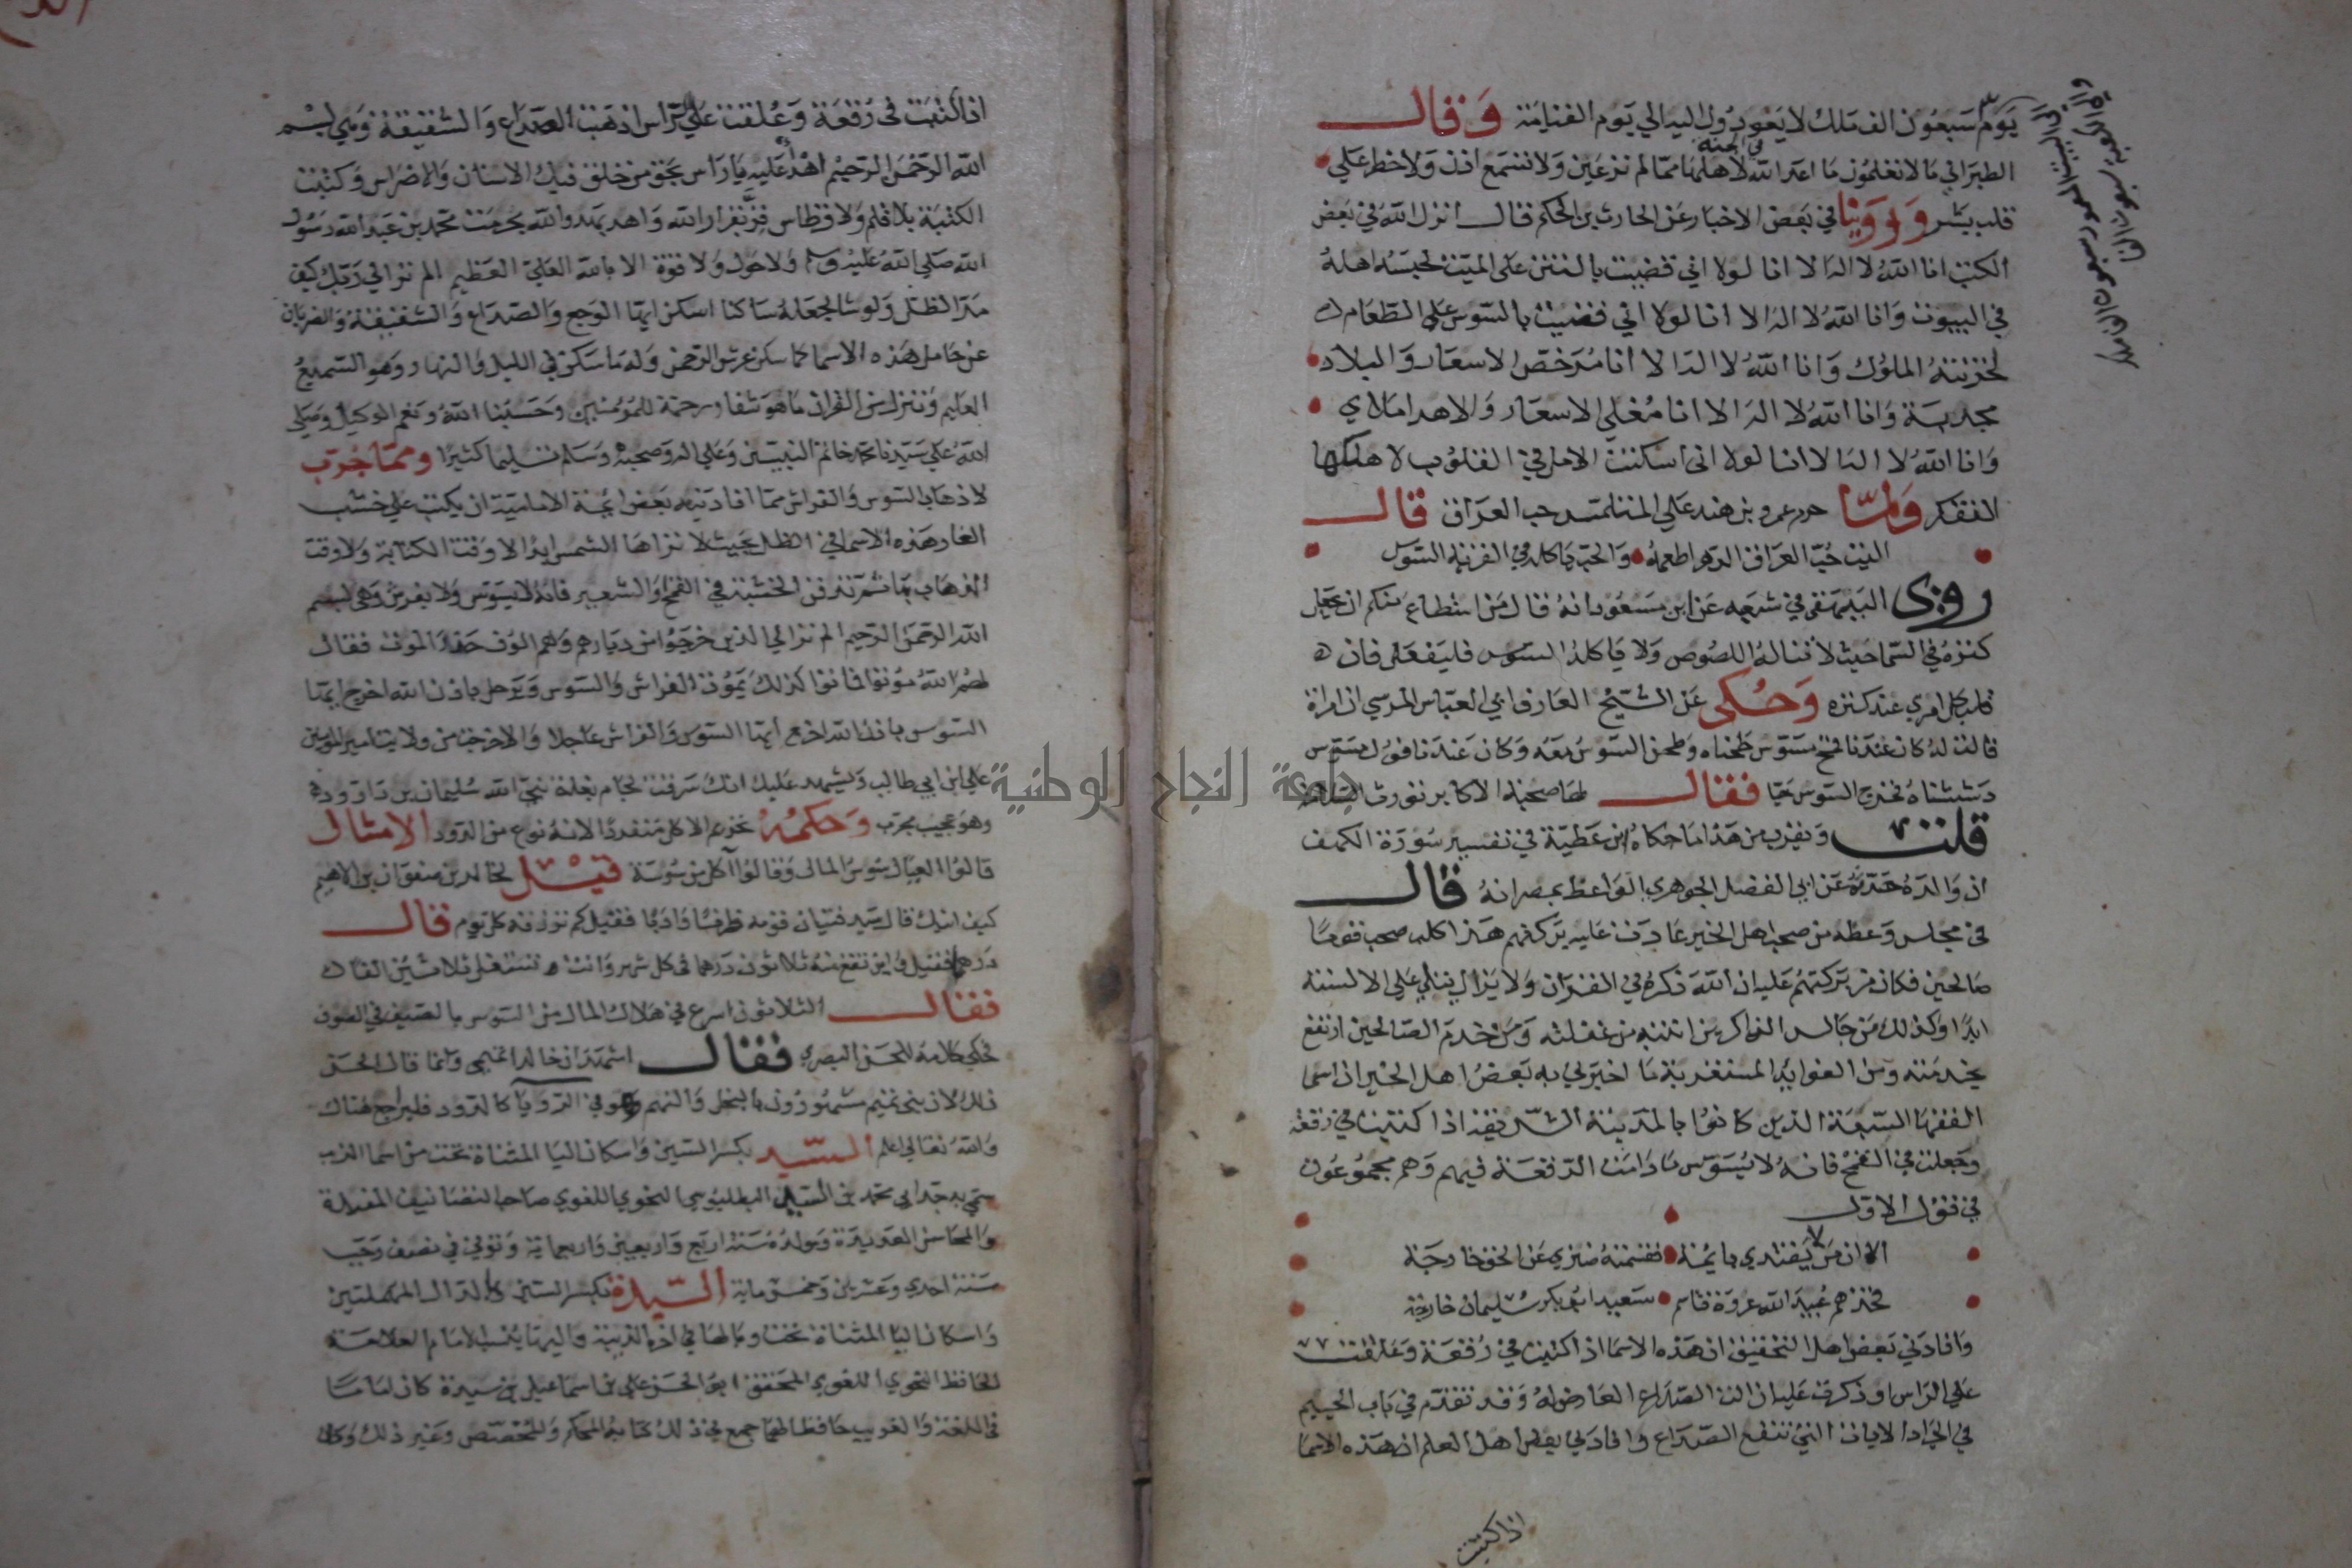 يوم سبعون الف ملك لا يعودون اليه الي يوم القيامة وقال
الطبراني ما لا تعلمون ما اعد الله في الجنه لاهلها مما لم تر عين ولا تسمع اذن ولا خطر علي
قلب بشر وروينا في بعض الاخبار عن الحارث بن الحكم قال انزل الله في بعض
الكتب انا الله لا اله الا انا لولا اني قضيت بالنتن على الميت لحبسه اهله
في البيوت وانا الله لا اله الا انا لولا اني قضيت بالسوس علي الطعام
لخزنته الملوك وانا الله لا اله الا انا مرخص الاسعار والبلاد
مجدبة وانا الله لا اله الا انا مغلي الاسعار والاهراء ملاي
وانا الله لا اله الا انا لولا اني اسكنت الامل في القلوب لاهلكها
التفكر ولما حرم عمرو بن هند علي المتلمس حب العراق قال
اليت حب العراق الدهر اطعمه والحب ياكله في القرية السوس
روي البيهقي في شعبه عن ابن مسعود انه قال من استطاع منكم ان يجعل
كنزه في السما حيث لا تناله اللصوص ولا ياكله السوس فليفعل فان
قلب كل امري عند كنزه وحكي عن الشيخ العارف ابي العباس المرسي ان امراة
قالت له كان عندنا قمح مسوس طحناه وطحن السوس معه وكان عندنا فول مسوس
دششناه فخرج السوس حيا فقال لها صحبة الاكابر تورث السلامة
قلت ويقرب من هذا ما حكاه ابن عطية في تفسير سورة الكهف
ان والده حدثه عن ابي الفضل الجوهري الواعظ بمصر انه قال
في مجلس وعظه من صحب اهل الخير عادت عليه بركتهم هذا كلب صحب قوما
صالحين فكان من بركتهم عليه ان الله ذكره في القران ولا يزال يتلي علي الالسنة
ابدا وكذلك من جالس الذاكرين انتبه من غفلته ومن خدم الصالحين ارتفع
بخدمته ومن الفوايد المستغربة ما اخبرني به بعض اهل الخير ان اسما
الفقها السبعة الذين كانوا بالمدينة الشريفة اذا كتبت في رقعة
وجعلت في القمح فانه لا يسوس ما دامت الرقعة فيهم وهم مجموعون
في قول الاول
الا ان من لا يقتدي بايمة فقسمته ضيزي عن الحق خارجة
فخذهم عبيد الله عروة قاسم سعيد ابو بكر سليمان خارجة
وافادني بعض اهل التحقيق ان هذه الاسما اذا كتبت في رقعة وعلقت
علي الراس او ذكرت عليه ازالت الصداع العارض له وقد تقدم في باب الجيم
في الجراد الايات التي تنفع الصداع وافادني بعض اهل العلم ان هذه الاسما
اذا كتبت
اذا كتبت في رقعة وعلقت علي الراس اذهبت الصداع والشقيقة وهي بسم
الله الرحمن الرحيم اهدا عليه يا راس بحق من خلق فيك الاسنان والاضراس وكتبت
الكتبة بلا قلم ولا قرطاس قر بقرار الله واهد بهدو الله بحرمت محمد بن عبد الله رسول
الله صلي الله عليه وسلم ولا حول ولا قوة الا بالله العلي العظيم الم تر الي ربك كيف
مد الظل ولو شا لجعله ساكنا اسكن ايها الوجع والصداع والشقيقة والضربان
عن حامل هذه الاسما كما سكن عرش الرحمن وله ما سكن في الليل والنهار وهو السميع
العليم وننزل من القران ما هو شفا ورحمة للمومنين وحسبنا الله ونعم الوكيل وصلي
الله علي سيدنا محمد خاتم النبيين وعلي اله وصحبه وسلم تسليما كثيرا ومما جرب
لاذهاب السوس والفراش مما افادنيه بعض ايمة الامامية ان يكتب علي خشب
الغار هذه الاسما في الظل بحيث لا تراها الشمس ابدا لا وقت الكتابة ولا وقت
الذهاب بها ثم تدفن الخشبة في القمح او الشعير فانه لا يسوس ولا يفرش وهي بسم
الله الرحمن الرحيم الم تر الي الذين خرجوا من ديارهم وهم الوف حذر الموت فقال
لهم الله موتوا فماتوا كذلك يموت الفراش والسوس ويرحل باذن الله اخرج ايها
السوس باذن الله اخرج ايها السوس والفراش عاجلا والا خرجت من ولاية امير المومنين
علي ابن ابي طالب ويشهد عليك انك سرقت لجام بغلة نبي الله سليمان بن داوود
وهو عجيب مجرب وحكمه تحريم الاكل منفردا لانه نوع من الدود الامثال
قالوا العيال سوس المال وقالوا آكل من سوسة قيل لخالد بن صفوان بن الاهيم
كيف ابنك قال سيد فتيان قومه ظرفا وادبا فقيل كم ترزقه كل يوم قال
درهما فقيل واين تقع منه ثلاثون درهما في كل شهر وانت تستغل ثلاثين الفا
فقال الثلاثون اسرع في هلاك المال من السوس بالصيف في الصوف
فحكي كلامه للحسن البصري فقال اشهد ان خالدا تميمي وانما قال الحسن
ذلك لان بني تميم مشهورون بالبخل والنهم وهو في الرويا كالدود فليراجع هناك
والله تعالي اعلم السيد بكسر السين واسكان اليا المثناة تحت من اسما الذيب
سمي به جد ابي محمد بن السيد البطليوسي النحوي اللغوي صاحب التصانيف المفيدة
والمحاسن العديدة ومولده سنة اربع واربعين واربعماية وتوفي في نصف رجب
سنة احدي وعشرين وخمسماية السيدة بكسر السين والدال المهملتين
واسكان اليا المثناة تحت وبالها في اخره الذيبة واليها ينسب الامام العلامة
الحافظ النحوي اللغوي المحقق ابو الحسن علي بن اسماعيل بن سيدة كان اماما
في اللغة والغريب حافظا لهما جمع في ذلك كتابه المحكم والمخصص وغير ذلك وكان
جامعة النجاح الوطنية